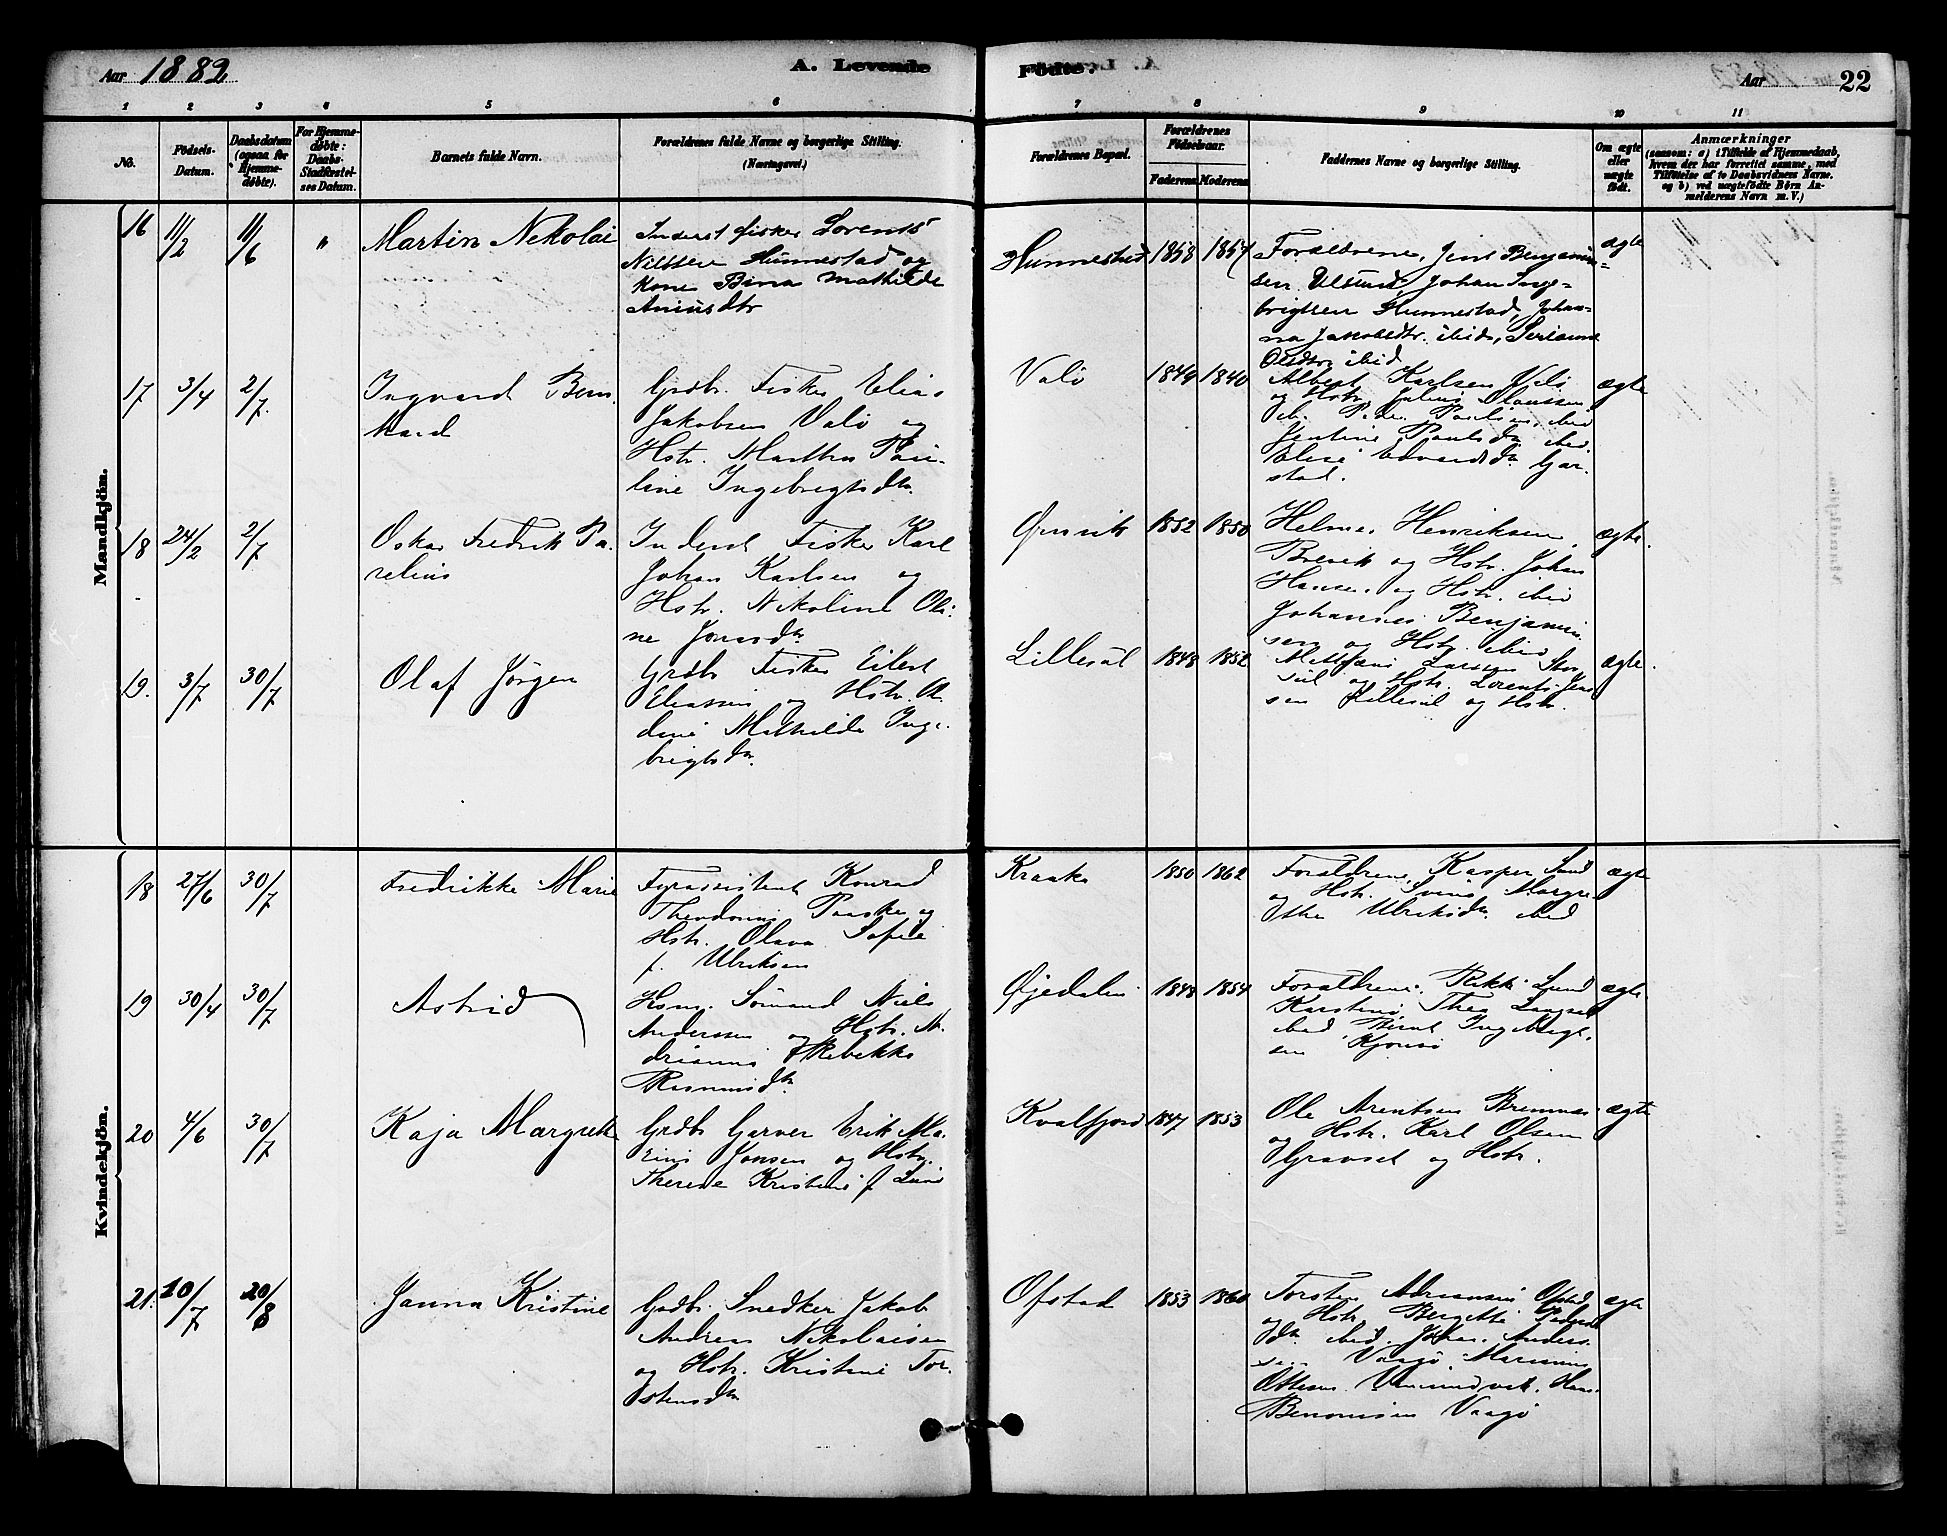 Aar 1882 A. Levende Födte. Aar 22
1 2 3 4 5 6 7 8 9 10 11
No.
Födsels-Datum.
Daabsdatum (ogsaa for Hjemmedöbte).
For Hjemmedöbte: Daabs-Stadfæstelses Datum.
Barnets fulde Navn.
Forældrenes fulde Navne og borgerlige Stilling.
(Næringsvei.)
Forældrenes Bopæl.
Forældrenes Födselsaar.
Faderens Moderens
Faddernes Navne og borgerlige Stilling.
Om ægte eller uægte födt.
Anmærkninger
(saasom: a) i Tilfælde af Hjemmedaab,
hvem der har forrettet samme, med
Tilföielse af to Daabsvidners Navne,
og b) ved uægtefödte Börn An-
melderens Navn m. V.)
Mandkjön.
16 11/2 11/6 " Martin Nekolai
Inderst fisker Lorents
Nilssen Hunnestad og
Kone Bina Mathilde
Aniusdtr
Hunnestad 1858 1857
Forældrene, Jent Benjamin-
sen Ulsund, Johan Inge-
brigtsen Hunnestad, Johan-
na Jakobsdtr. ibid,
Olsdtr ibid
ægte
17 3/4 2/7 Ingvard Bern
hard
Grdbr. Fisker Elias
Jakobsen Valö og
Hstr. Marthea Pau-
line Ingebrigtsdtr.
Valö 1849 1840
Albert Karlsen Valö
og Hstr. Julius Olaussen
Peder Paulsen ibid
Jentine Paulsdtr ibid
Elise Edvardsdtr Gar-
stad.
ægte
18 24/2 2/7 Oskar Fredrik Pa-
relius
Inderst Fisker Karl
Johan Karlsen og
Hstr. Nikoline Oli-
ne Jonasdtr
Ørnvik 1852 1850
Helmer Henriksen
Brevik og Hstr. Johan
Hansen og Hstr. ibid
Johannes Benjamin
sen og Hstr. ibid
ægte.
19. 3/7 30/7 Olaf Jörgen
Grdbr Fisker Eilert
Eliassen og Hstr.
Mathilde Inge-
brigtsdtr.
Lillesül 1848 1852
Larssen Stor
sül og Hstr. Lorents Jen
sen Lillesül og Hstr.
ægte.
Kvindekjön.
18 27/6 30/7 Fredrikke Marie
Fyrassistent Konrad
Paaske og
Hstr. Olava Sofie
f. Ulriksen
Kraaka 1850 1862
Forældrene, Kasper Lund
og Hstr. Margre
the Ulriksdtr. ibid
ægte
19 30/4 30/7 Astrid
Hsmd. Sömand Niels
Anderssen og Hstr. A-
Rebekka
Rasmusdtr
Øjedalen 1848 1854
Forældrene. Rikke Lund
Thea
ibid Bernt Ingebrigt-
sen
ægte
20 4/6 30/7 Kaja Margrete
Grdbr Garver Erik Ma-
Jonsen og Hstr.
Therese Kristine f. Lund
Kvalfjord 1847 1853
Ole Arentsen Bremnes
og Hstr. Karl Olsen
Gravset og Hstr.
ægte
21. 20/7 20/8 Janna Kristine
Grdbr. Snedker Jakob
Andreas Nikolaisen
og Hstr. Kristine Tor-
stensdtr
Ofstad 1853 1860
Torsten Adriansen Ofstad
og Hstr. Bergitte Peders
dtr. ibid. Johan Anders
sen Vaagö. Marinius
Ottesen
Benoniesen Vaagö
ægte